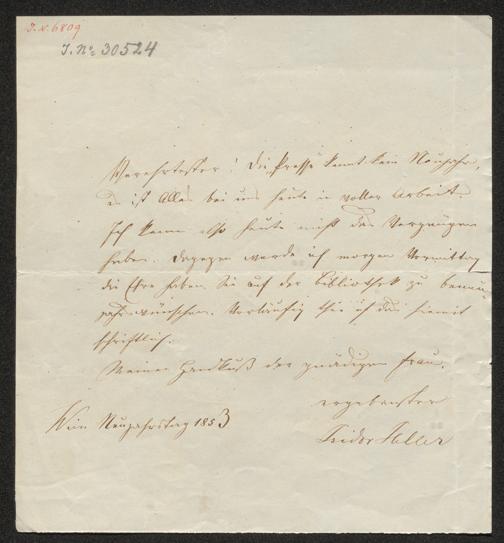 I.N. 6809
I. No 30524
Verehrtester! Die Presse kennt kein Neujahr,
da ist Alles bei uns heute in voller Arbeit.
Ich kann also heute nicht das Vergnügen
haben. Dagegen werde ich morgen Vormittag
die Ehre haben Sie auf der Bibliothek zu
wünschen. Vorläufig thue ich das hiemit
schriftlich.
Meinen Handkuß der gnädigen Frau.
ergebenster
Wien Neujahrstag 1853
Isidor Heller